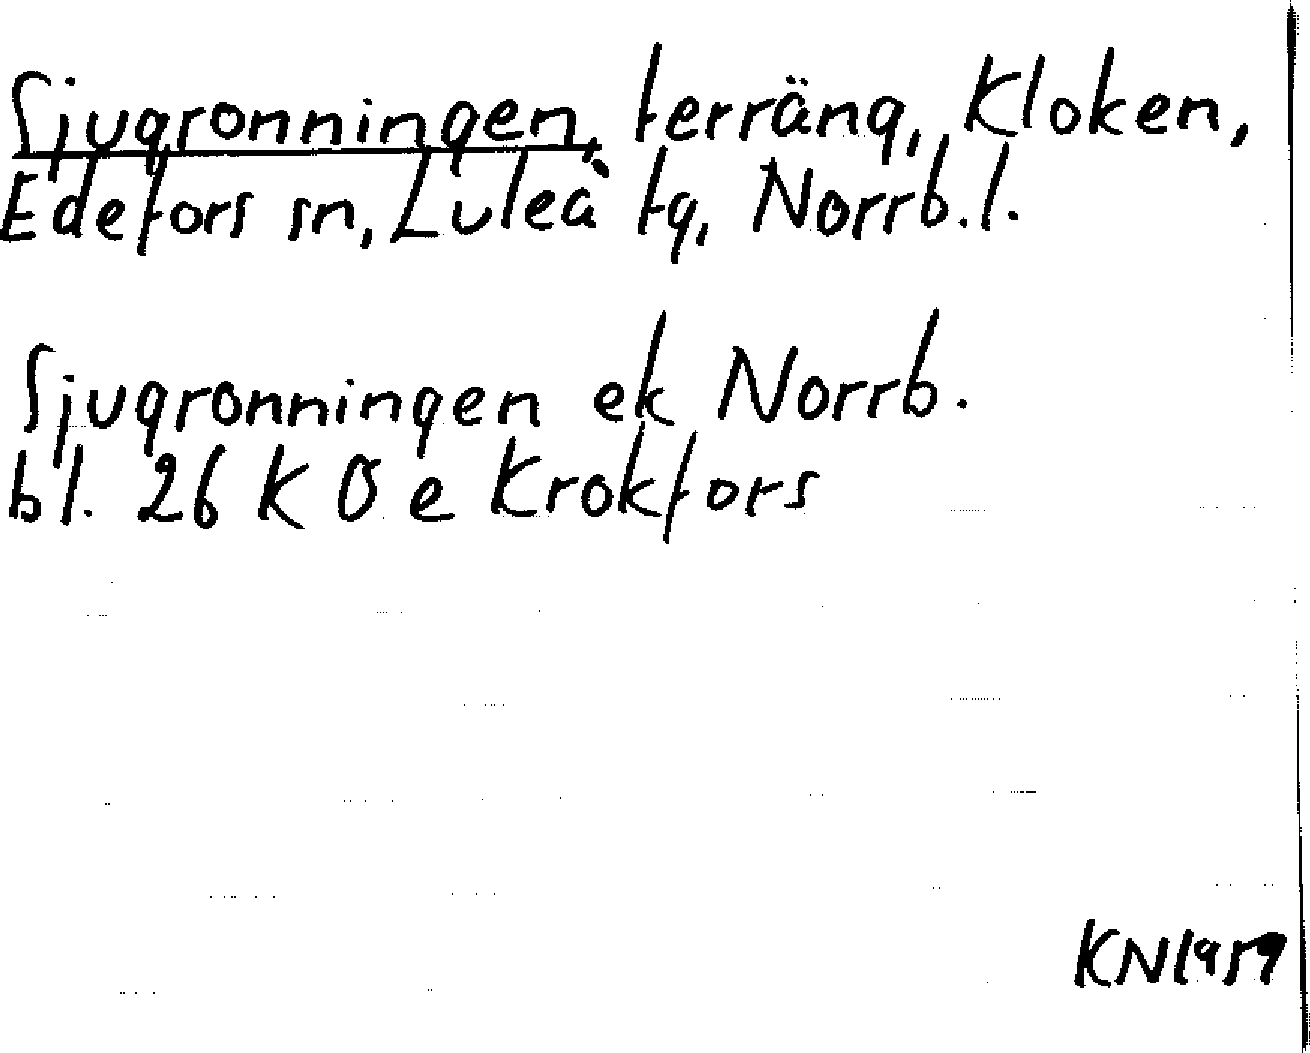 Sjugronningen, terräng, Kloken,
Edefors sn, Luleå tg, Norrb.l.
Sjugronningen ek Norrb.
bl. 26 K Ö e Krokfors
KN1959